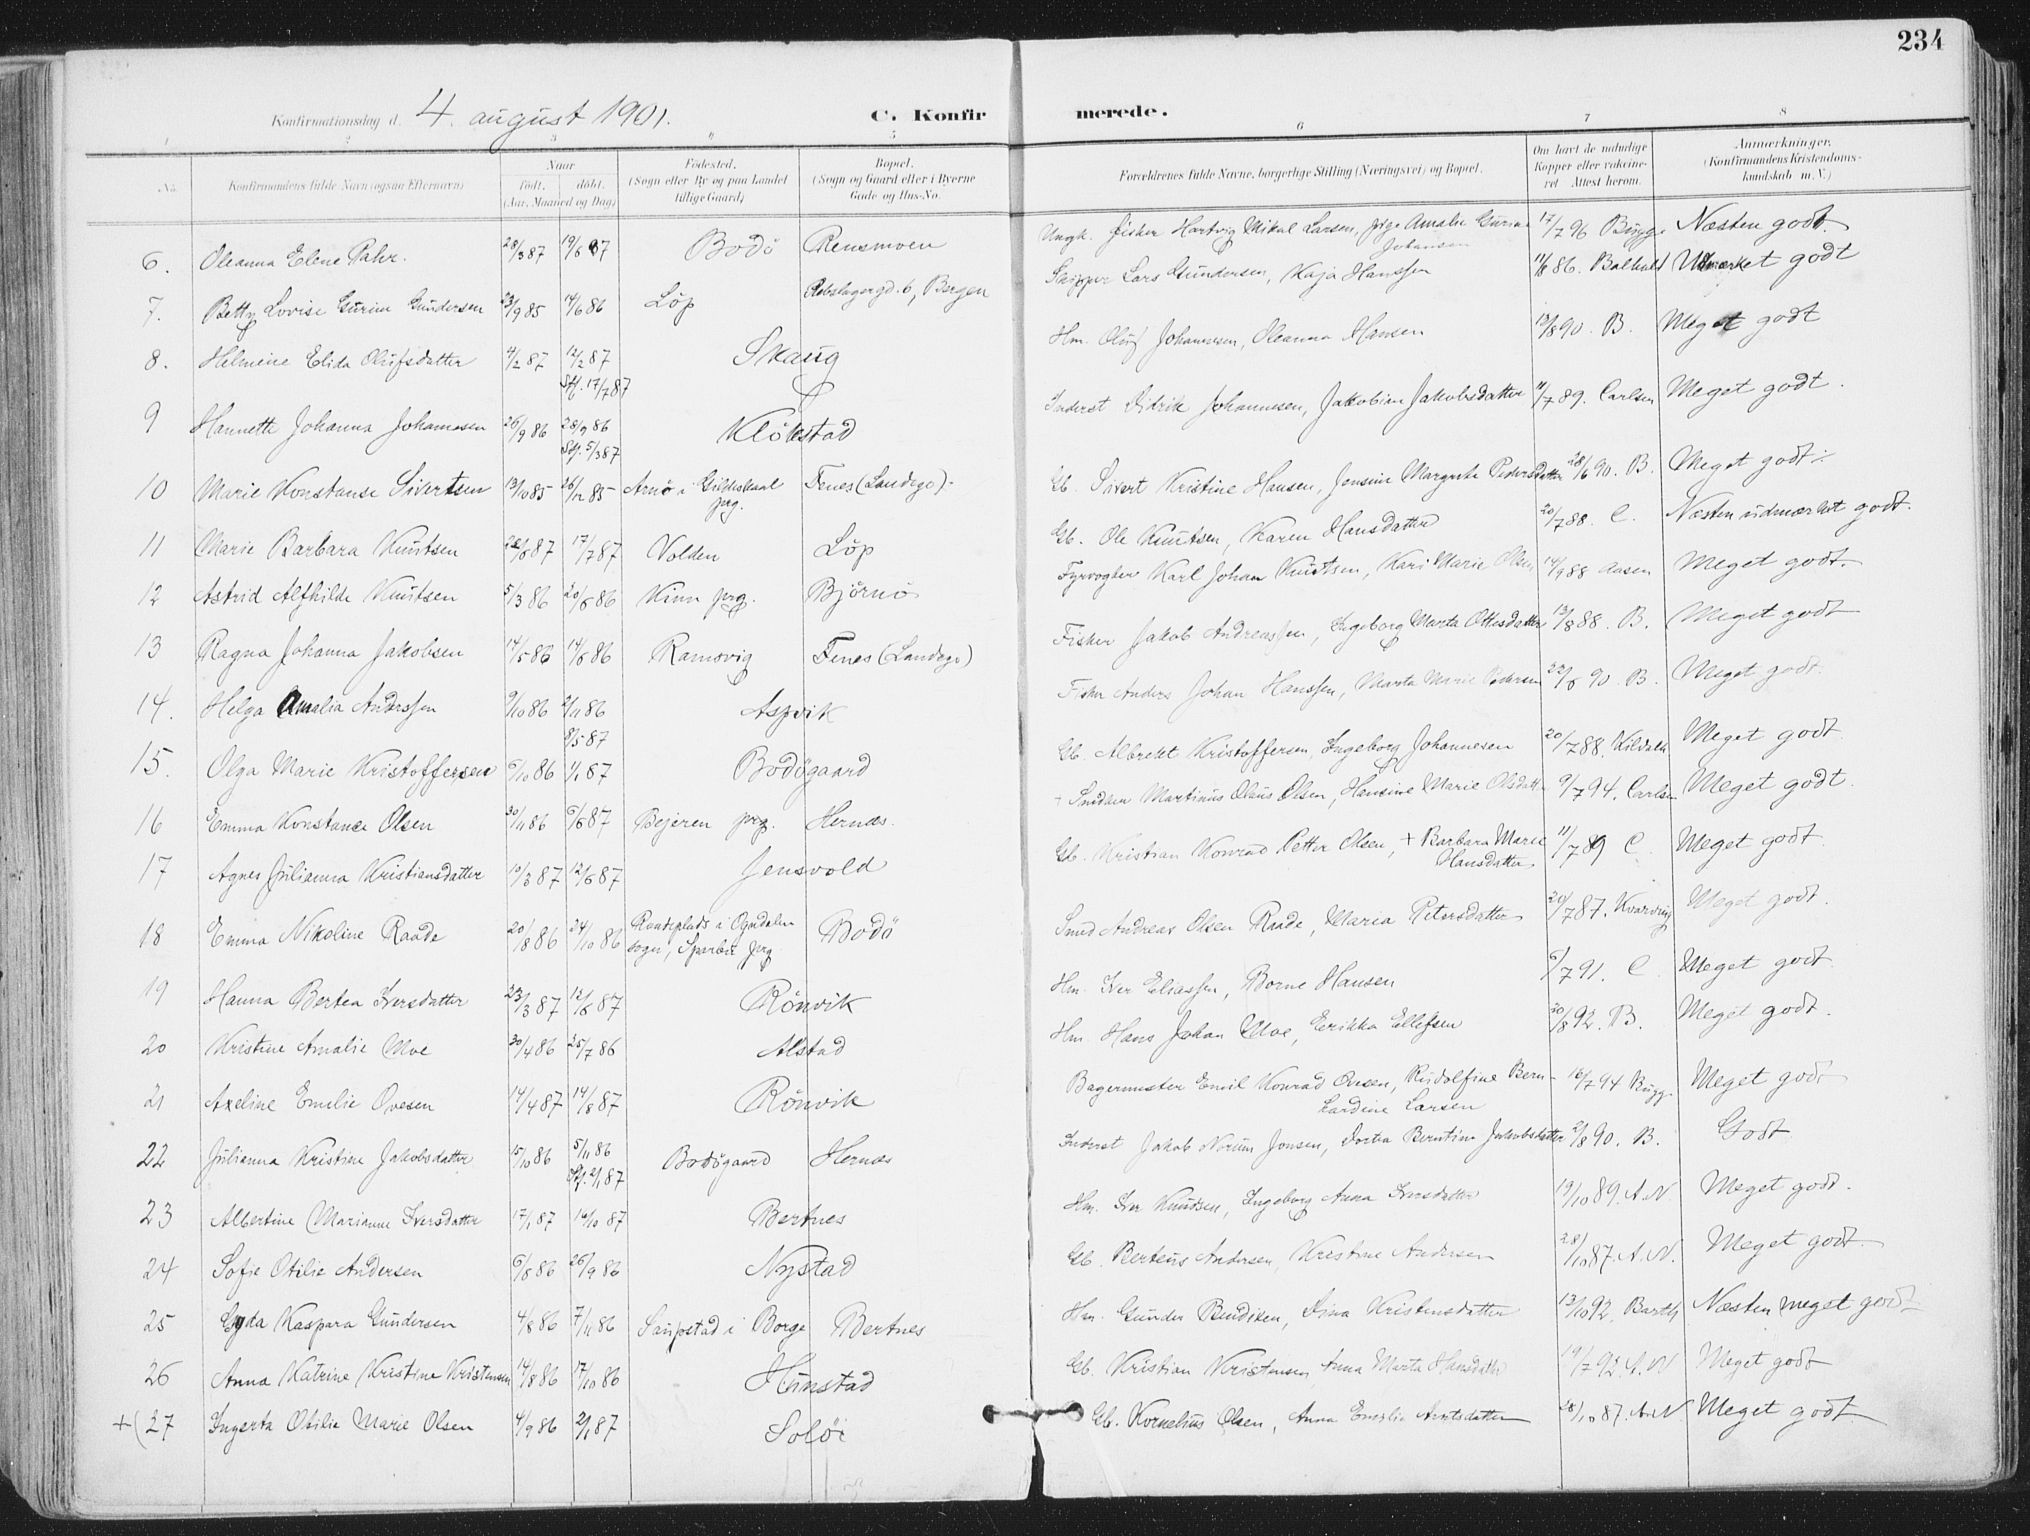 234
Konfirmationsdag d. 4. august 1901.
C. Konfirmerede.
1 2 3 4 5 6 7 8
No. Konfirmandens fulde Navn (ogsaa Efternavn)
Naar født, døbt. (Aar, Maaned og Dag)
Fødested. (Sogn eller By og paa Landet tillige Gaard)
Bopæl. (Sogn og Gaard eller i Byerne Gade og Hus-No.
Forældrenes fulde Navne, borgerlige Stilling (Næringsvei) og Bopæl.
Om havt de naturlige Kopper eller vaccineret Attest herom.
Anmerkninger. (Konfirmandens Kristendomskundskab m. V.)
6. Oleanna Elene Pahr. 28/3 87 19/6 87 Bodö Rensmoen Ungk. fisker Hartvig Mikal Larsen, pige Amalie Gurine Johansen 17/7 96 Bugge Næsten godt.
7. Betty Lovise Gurine Gundersen 23/9 85 14/6 86 Löp Rebslagergd. 6, Bergen Skipper Lars Gundersen, Kaja Hanssen 11/8 86. Udmerket godt
8. Helmine Elida Olufsdatter 4/2 87 12/2 87 Stf. 17/7 87 Skaug Hm. Oluf Johannesen, Oleanna Hansen 13/8 90. B. Meget godt
9 Hannette Johanna Johannesen 26/9 86 28/9 86 Stf. 5/3 87 Klökstad Inderst Didrik Johannesen, Jakobine Jakobsdatter 11/7 89. Carlsen Meget godt.
10 Marie Konstanse Sivertsen 13/10 85 26/12 85 Arnö i Gildeskaal prg. Fenes (Landego). Gb. Sivert Kristine Hansen, Jonsine Margrete Pedersdatter 28/6 90. B. Meget godt
11 Marie Barbara Knutsen 28/6 87 17/7 87 Volden Löp Gb. Ole Knutsen, Karen Hansdatter 20/7 88. C. Næsten udmærket godt.
12 Astrid Alfhilde Knutsen 5/3 86 20/6 86 Kinn prg. Björnö Fyrvogter Karl Johan Knutsen, Kari Marie Olsen 14/9 88 Aasen Meget godt.
13 Ragna Johanna Jakobsen 14/5 86 14/6 86 Ramsvig Fenes (Landego) Fisker Jakob Andreassen, Ingeborg Marta Ottesdatter 13/8 88. B. Meget godt
14. Helga Amalia Anderssen 9/10 86 2/11 86 8/5 87 Aspvik Fisker Anders Johan Hanssen, Marta Marie Pedersen 22/6 90. B. Meget godt.
15. Olga Marie Kristoffersen 6/10 86 1/1 87 Bodögaard Gb. Albrekt Kristoffersen, Ingeborg Johannesen 20/7 88. Meget godt.
16 Emma Konstance Olsen 30/11 86 6/6 87 Bejeren prg. Hernæs. + Snedker Martinus Olaus Olsen, Hansine Marie Olsdatter 9/7 94. Carlsen Meget godt.
17 Agnes Julianna Kristiansdatter 10/3 87 12/6 87 Jensvold Gb. Kristian Konrad Petter Olsen, + Barbara Marie Hansdatter 11/7 89 C. Meget godt.
18 Emma Nikoline Raade 20/8 86 24/10 86 Raadeplads i Ogndalen sogn, Sparbu prg. Bodö Smed Andreas Olsen Raade, Maria Petersdatter 20/7 87. Kvarving Meget godt.
19 Hanna Bertea Iversdatter 23/3 87 12/6 87 Rönvik Hm. Iver Eliassen, Borne Hansen 6/7 91. C. Meget godt.
20 Kristine Amalie Moe 30/4 86 25/7 86 Alstad Hm. Hans Johan Moe, Erikka Ellefsen 20/8 92. B. Meget godt.
21 Axeline Emelie Ovesen 14/4 87 14/8 87 Rönvik Bagermester Emil Konrad Ovesen, Rudolfine Bernhardine Larsen 16/7 94 Bugge Meget godt
22 Julianna Kristine Jakobsdatter 15/10 86 5/11 86 Stf. 2/1 87 Bodögaard Hernæs Inderst Jakob Norum Jonsen, Dortea Berntine Jakobsdatter 2/8 90. B. Godt
23 Albertine Marianne Iversdatter 17/1 87 16/10 87 Bertnes Hm. Iver Knudsen, Ingeborg Anna Iversdatter 19/10 89. A.N. Meget godt.
24 Sofie Otilie Andersen 6/8 86 26/9 86 Nystad Gb. Berteus Andersen, Kristine Andersen 28/10 87. A.N. Meget godt
25 Gyda Kaspara Gundersen 4/8 86 7/11 86 Saupstad i Borge Bertnes Hm. Gunder Bendiksen, Dina Kristensdatter 13/10 92. Barth Næsten meget godt
26 Anna Katrine Kristine Kristensen 14/8 86 17/10 86 Hunstad Gb. Kristian Kristensen, Anna Marta Hansdatter 19/7 92. A.N Meget godt
+(27 Ingerta Otilie Marie Olsen 4/9 86 2/1 87 Solöi Gb. Kornelius Olsen, Anna Emelie Arntsdatter 28/10 87. A.N Meget godt